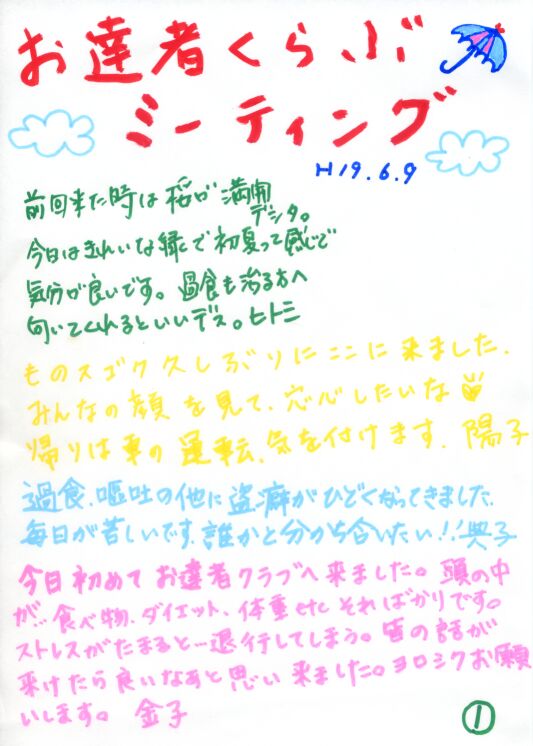 お達者くらぶ
ミーティング
H19.6.9
前回来た時は桜が満開
デシタ。
今日はきれいな緑で初夏って感じで
気分が良いです。過食も治る方へ
向いてくれるといいデス。ヒトミ
ものスゴク久しぶりにここに来ました。
みんなの顔を見て、安心したいな
帰りは車の運転、気を付けます。陽子
過食、嘔吐の他に盗癖がひどくなってきました。
毎日が苦しいです。誰かと分かち合いたい!!典子
今日初めてお達者クラブへ来ました。頭の中
が…食べ物、ダイエット、体重etcそればかりです。
ストレスがたまると一退行してしまう。皆の話が
来けたら良いなぁと思い来ました。ヨロシクお願
いします。 金子
①